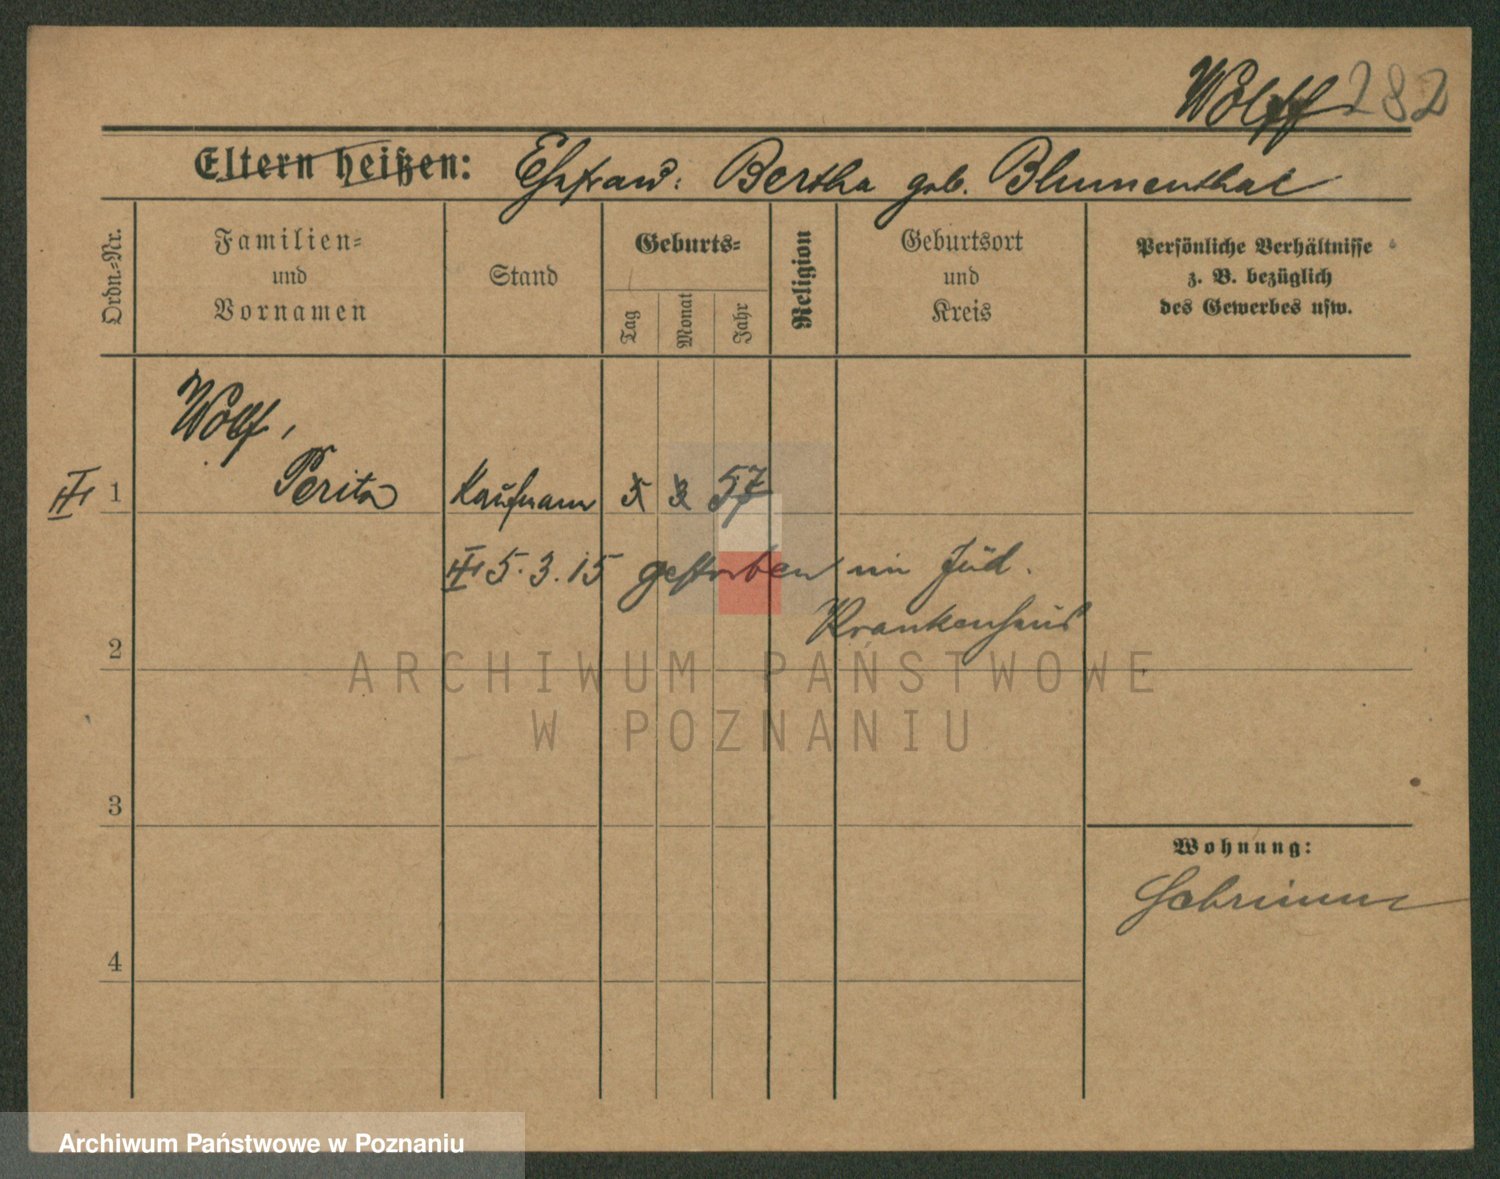 Wolff 282
Eltern heißen: Ehefrau: Bertha geb. Blumenthal
Ordn.-Nr.
Familien-
und
Vornamen
Stand
Geburts-
Tag
Monat
Jahr
Religion
Geburtsort
und
Kreis
Persönliche Verhältnisse
z. B. bezüglich
des Gewerbes usw.
Wolff,
1 Peritz Kaufmann 5 3 57
5.3.15 gestorben im Jüd.
Krankenhaus
2
3
4
Wohnung:
Schrimm
ARCHIWUM PAŃSTWOWE
W POZNANIU
Archiwum Państwowe w Poznaniu